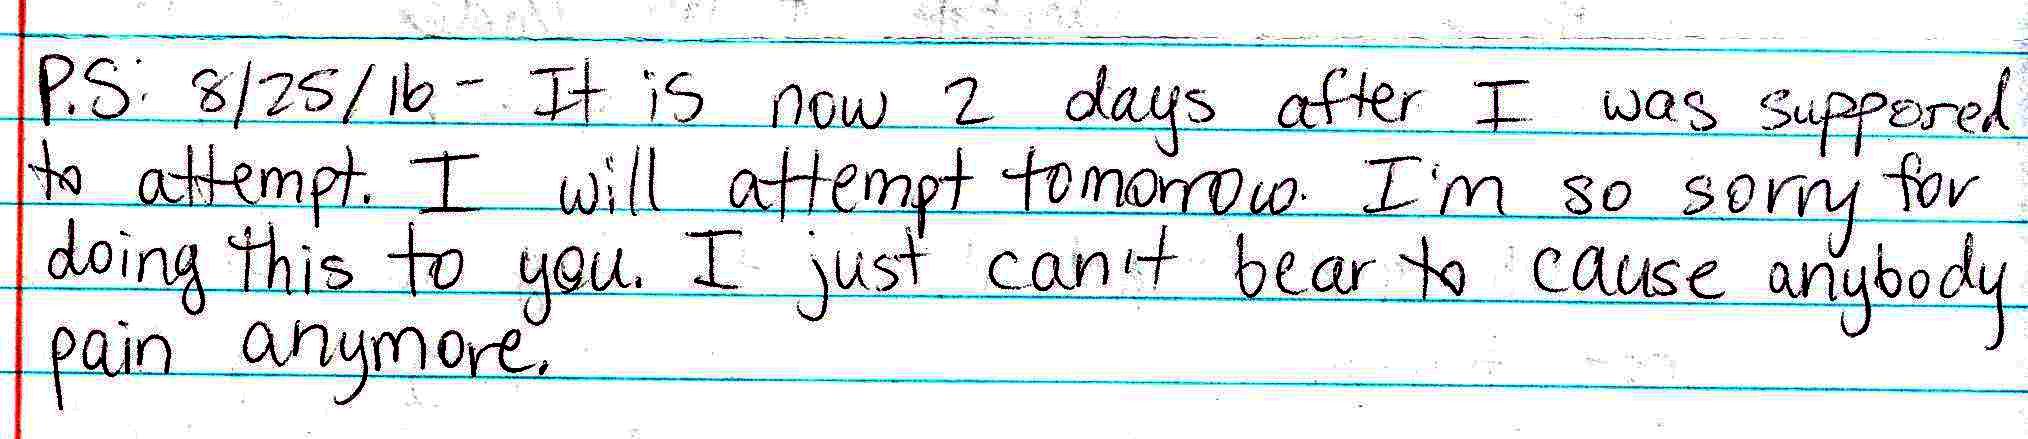 P.S: 8/25/16 - It is now 2 days after I was suppored
to attempt. I will attempt tomorrow. I'm so sorry for
doing this to you. I just can't bear to cause anybody
pain anymore.